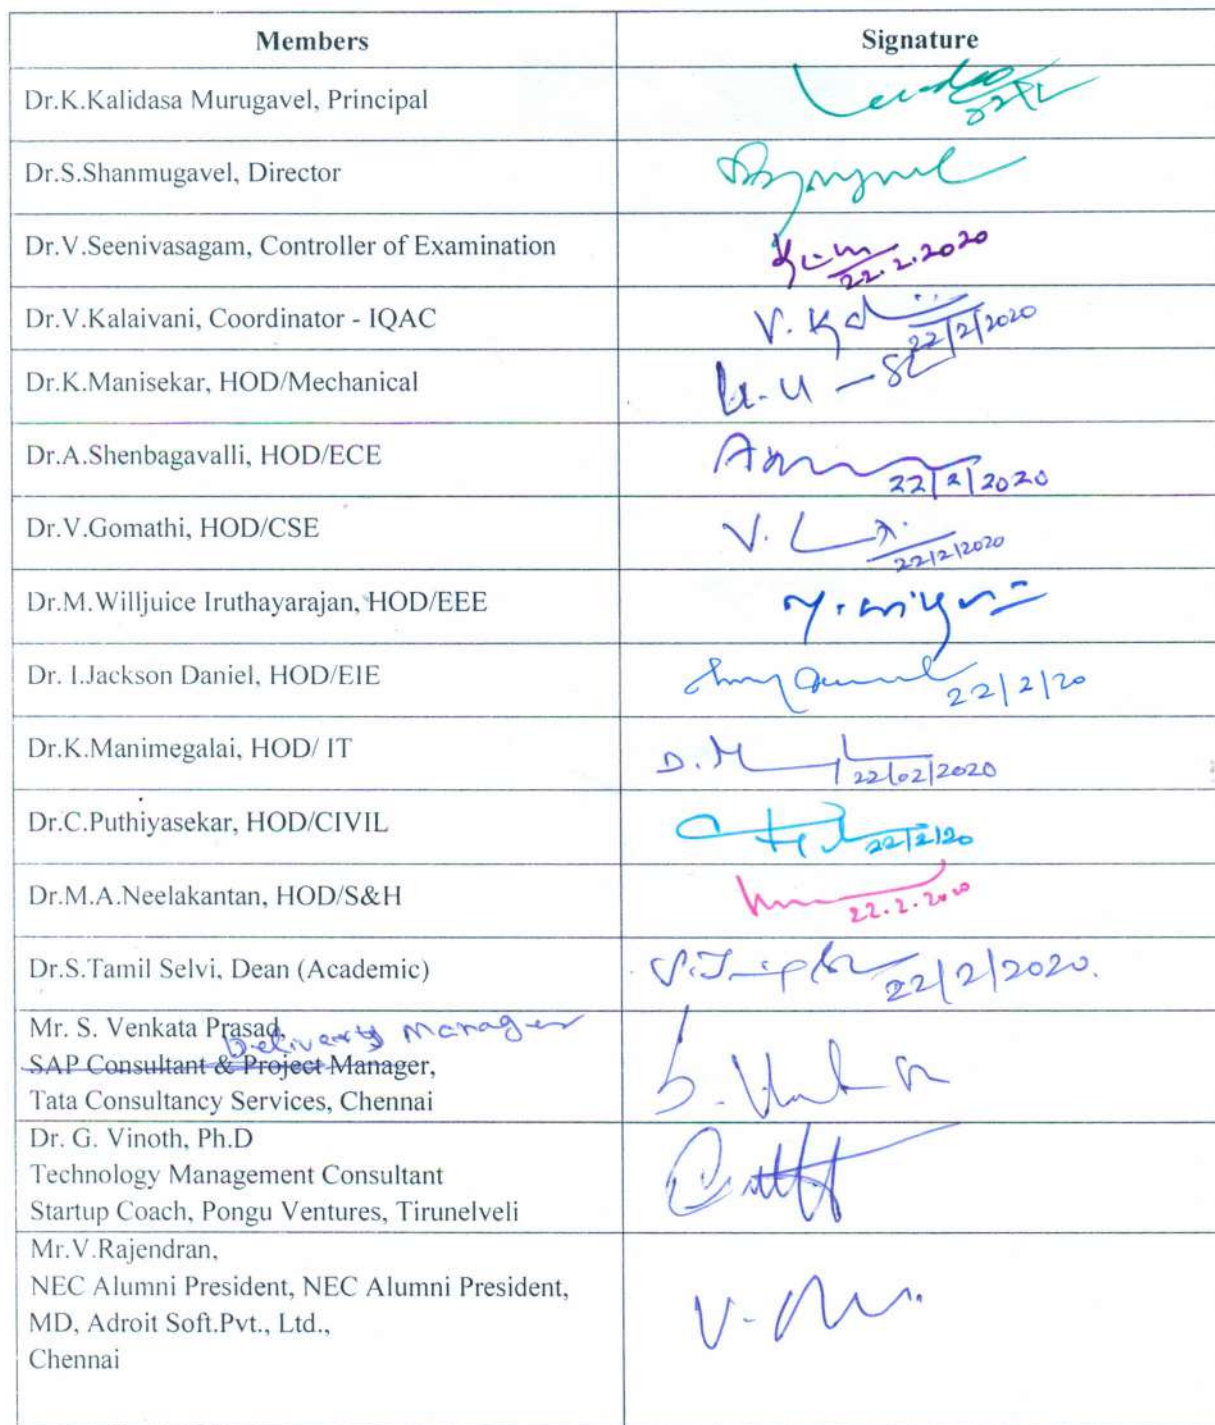 Members Signature
Dr.K.Kalidasa Murugavel, Principal
Dr.S.Shanmugavel, Director
Dr.V.Seenivasagam, Controller of Examination 22.2.2020
Dr.V.Kalaivani, Coordinator - IQAC V. 22/2/2020
Dr.K.Manisekar, HOD/Mechanical
Dr.A.Shenbagavalli, HOD/ECE 22/2/2020
Dr.V.Gomathi, HOD/CSE V. 22/2/2020
Dr.M.Willjuice Iruthayarajan, HOD/EEE
Dr. I.Jackson Daniel, HOD/EIE 22/2/20
Dr.K.Manimegalai, HOD/ IT D. 22/02/2020
Dr.C.Puthiyasekar, HOD/CIVIL 22/2/20
Dr.M.A.Neelakantan, HOD/S&H 22.2.2020
Dr.S.Tamil Selvi, Dean (Academic) 22/2/2020.
Mr. S. Venkata Prasad,
Delivery Manager
SAP Consultant & Project Manager,
Tata Consultancy Services, Chennai
Dr. G. Vinoth, Ph.D
Technology Management Consultant
Startup Coach, Pongu Ventures, Tirunelveli
Mr.V.Rajendran,
NEC Alumni President, NEC Alumni President,
MD, Adroit Soft.Pvt., Ltd.,
Chennai